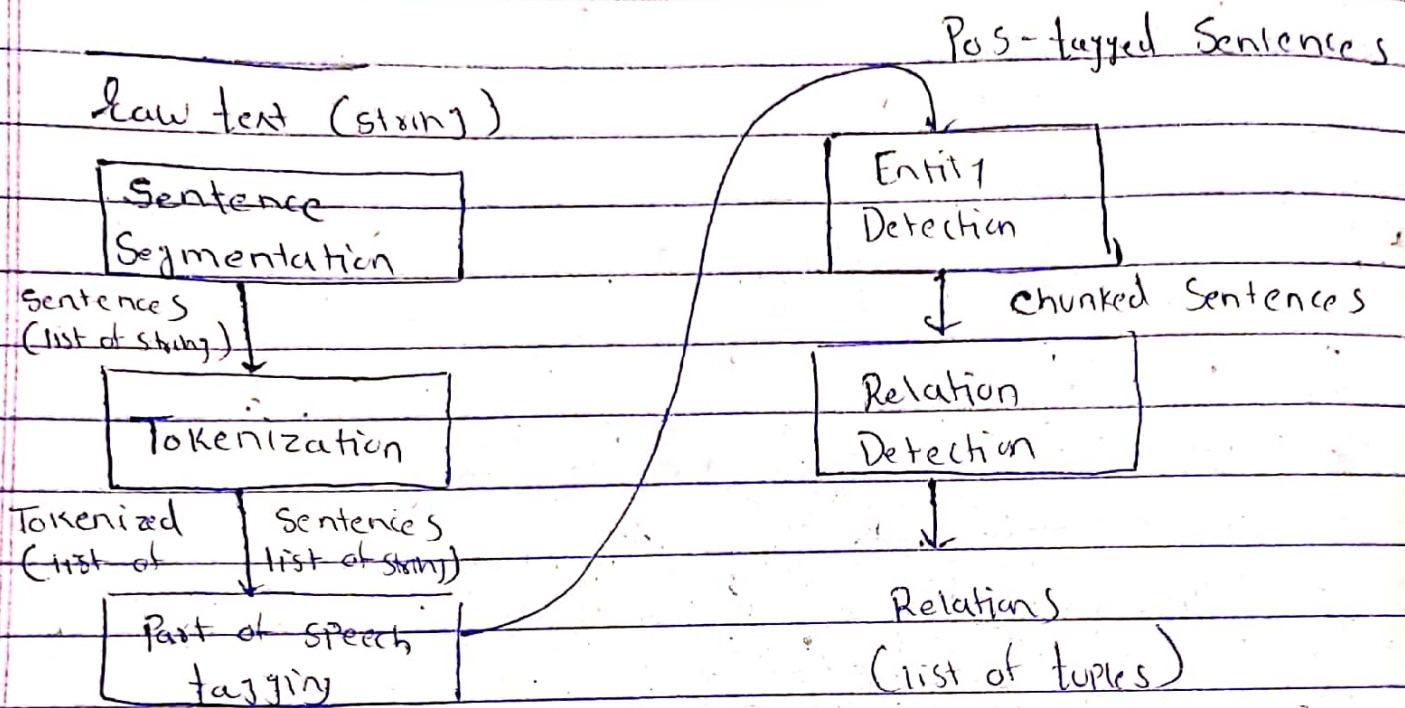 Raw text (string)
Sentence
Segmentation
Sentences
(list of string)
Tokenization
Tokenized Sentences
(list of list of string)
Part of speech
tagging
Pos-tagged Sentences
Entity
Detection
Chunked Sentences
Relation
Detection
Relations
(list of tuples)